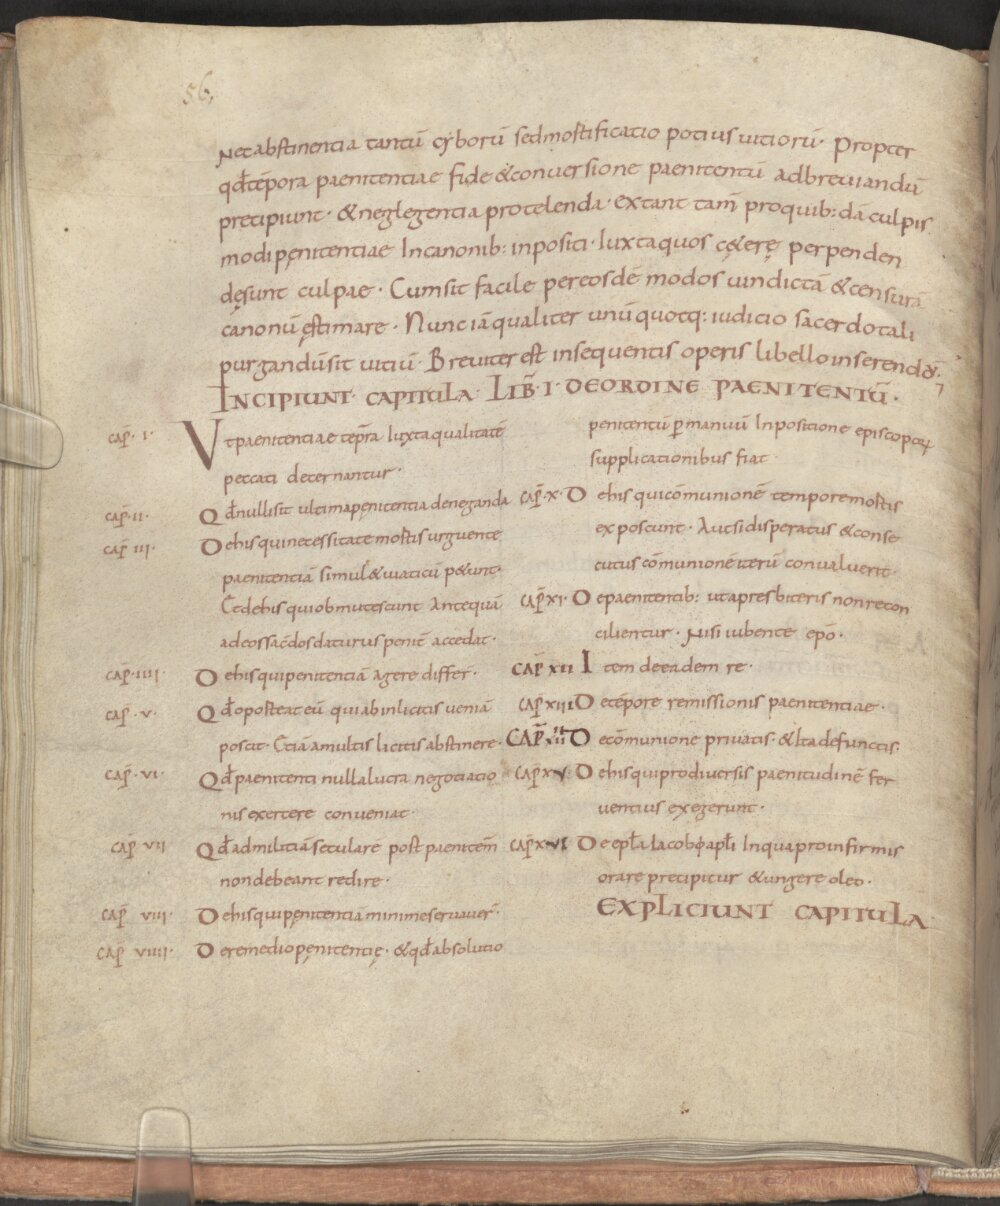 56,
Nec abstinentia tantū cyborū sed mortificatio potius vitiorū· Propter
qđ tēpora paenitentiae fide & conversione paenitentū adbreviandū
precipiunt· & neglegentia protelenda· extant tam̄ pro quib: dā culpis
modi pęnitentiae In canonib: inpositi· Iuxta quos cę&erę perpenden
dę sunt culpae· Cum sit facile per eosdē modos vindictā & censura
canonū ęstimare· Nunc iā qualiter unū quotq: iudicio sacerdotali
purgandū sit vitiū· Breviter est in sequentis operis libello inserend&
INCIPIUNT CAPITULA LIB̄ I· DE ORDINE PAENITENTŪ·
CAP̄· I· Ut paenitentiae tēpora Iuxta qualitatē
peccati decernantur·
CAP̄·II· Qđ nulli sit ultima pęnitentia deneganda
CAP̄ III· De his qui necessitate mortis urguente
paenitentiā simul & viaticū p&unt·
Et de his qui obmutescunt Antequā
ad eos sac̄dos daturus penit̄ accedat·
CAP̄·IIII· De his qui penitentiā agere differ̄·
CAP̄ ·V· Qđ oporteat eū qui ab inlicitis veniā
poscit· Etiā a multis licitis abstinere·
CAP̄ ·VI· Qđ paenitenti nulla lucra negotiatio
nis exercere conveniat·
CAP̄ VII Qđ ad militiā secularē post paenitem̄
non debeant redire·
CAP̄ VIII· De his qui pęnitentiā minime servaver̄·
CAP̄ VIIII· De remedio pęnitentię· & qđ absolutio
penitentū p̄ manuū Inpositione episcoporum
supplicationibus fiat
CAP̄·X· De his qui cōmunionē tempore mortis
exposcunt· Aut si disperatus & conse
cutus cōmunionē iterū convalverit·
CAP̄ XI· De paenitentib: ut a presbiteris non recon
cilientur· Nisi iubente ep̄o·
CAP̄ XII Item de eadem re·
CAP̄ XIII De tēpore remissionis paenitentiae·
CAP̄ XIIII De cōmunione privatis· & Ita defunctis·
CAP̄ XV De his qui pro diversis paenitudinē fer
ventius exegerunt·
CAP̄ XVI De epl̄a Iacobi apl̄i In qua pro infirmis
orare precipitur & ungere oleo·
EXPLICIUNT CAPITULA